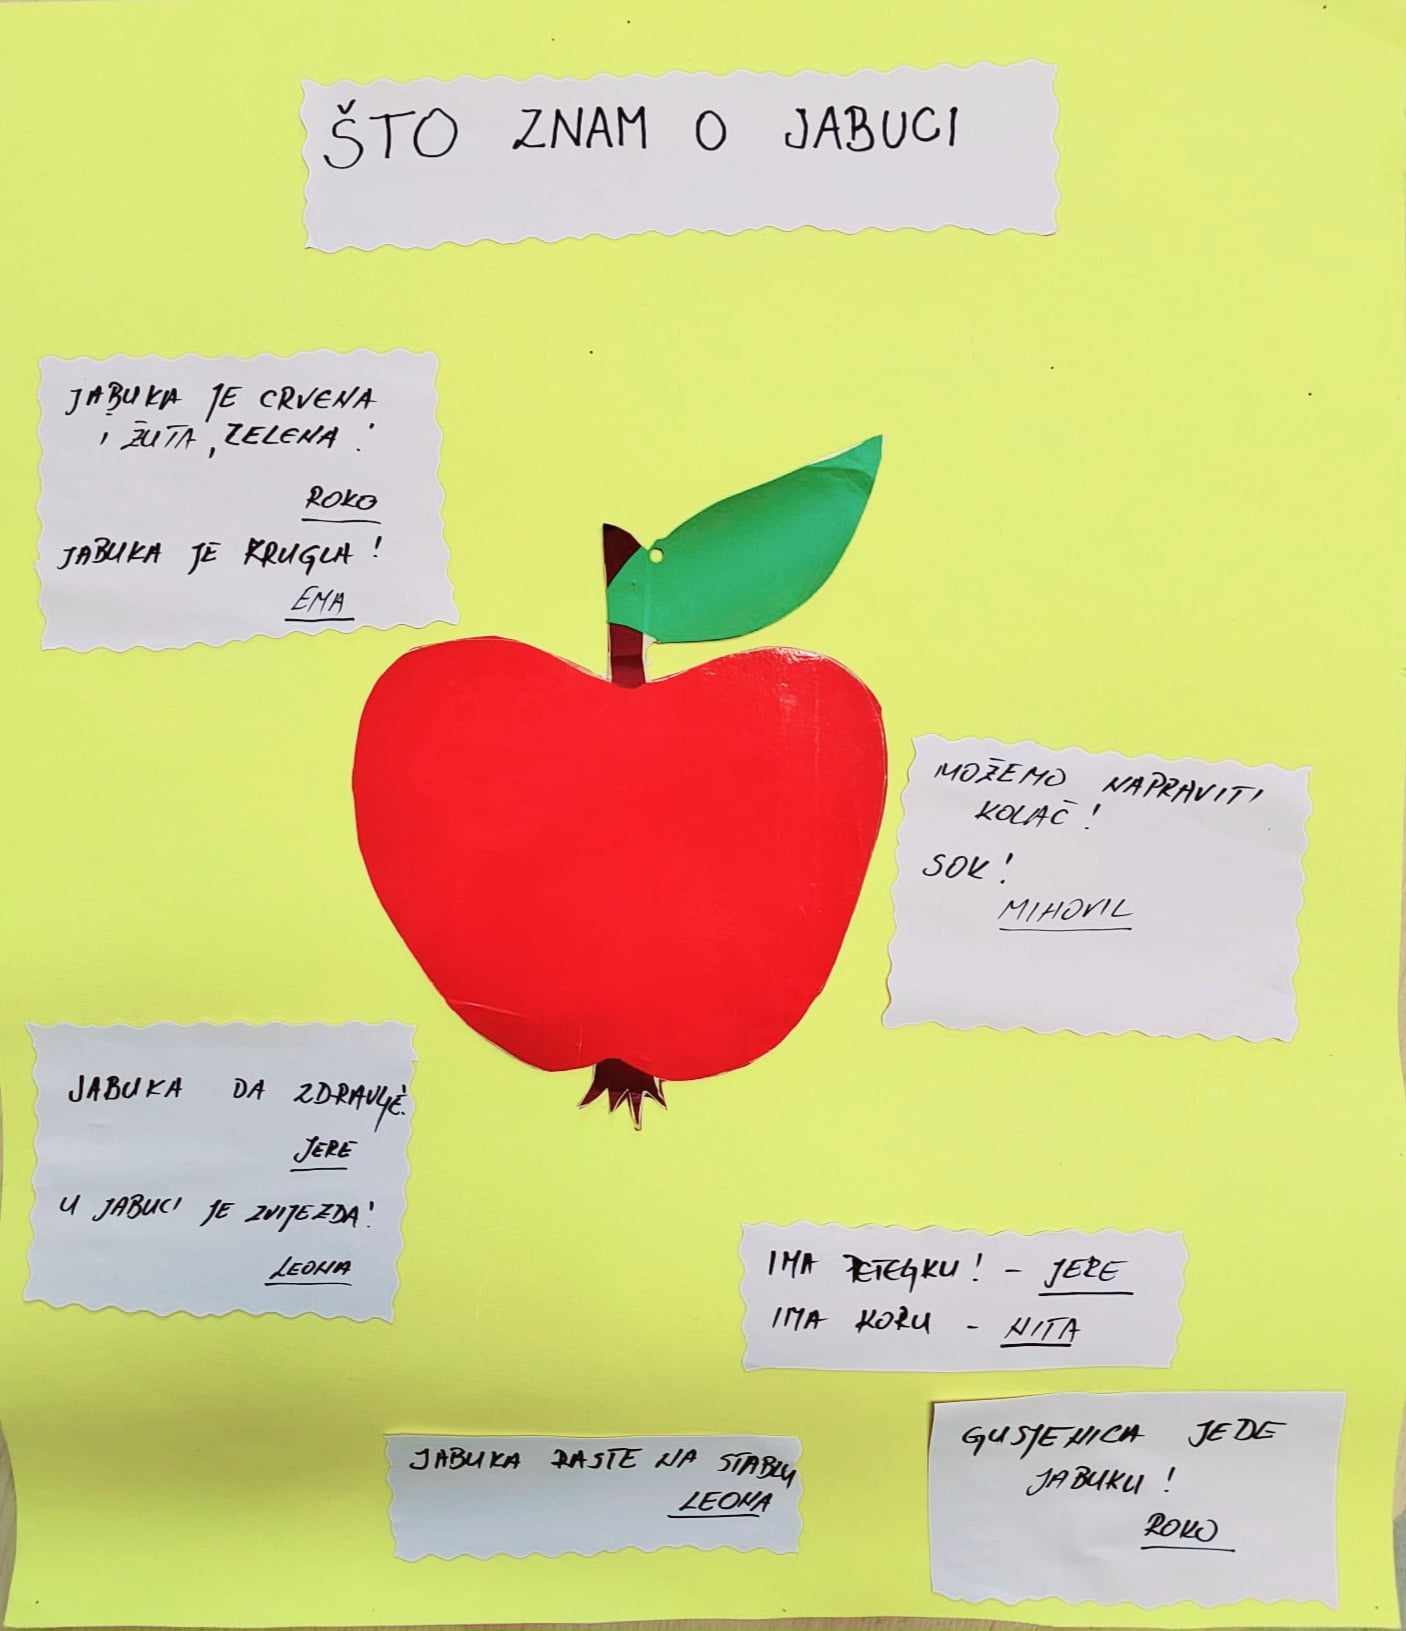 ŠTO ZNAM O JABUCI
JABUKA JE CRVENA
I ŽUTA, ZELENA!
ROKO
JABUKA JE KRUGLA!
EMA
MOŽEMO NAPRAVITI
KOLAČ!
SOK!
MIHOVIL
JABUKA DA ZDRAVLJE.
JERE
U JABUCI JE ZVIJEZDA!
LEONA
IMA PETELJKU! - JERE
IMA KORU - NITA
JABUKA RASTE NA STABLU
LEONA
GUSJENICA JEDE
JABUKU!
ROKO